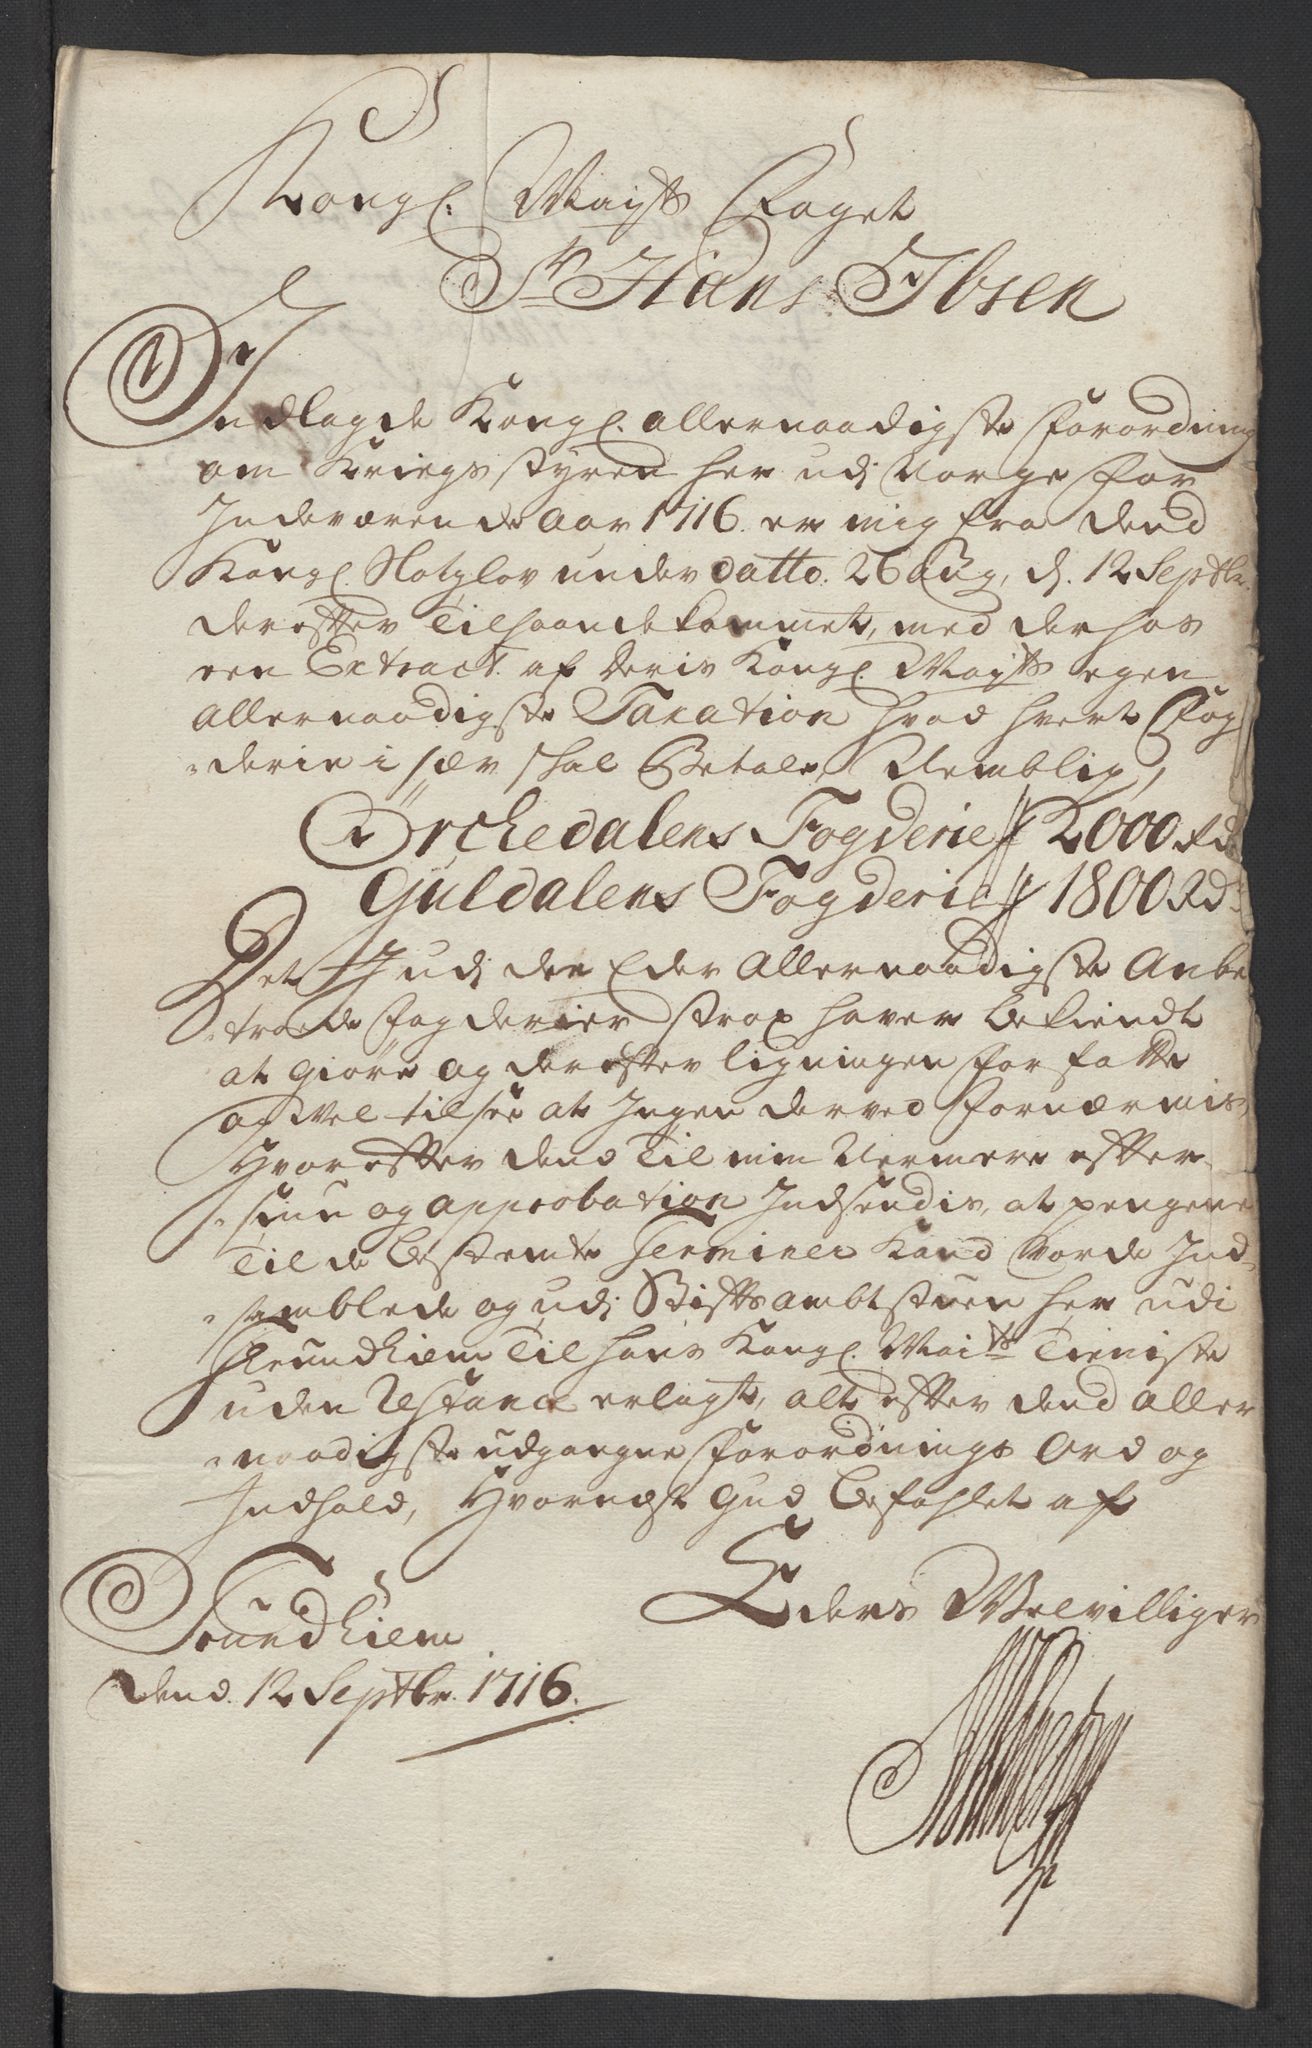 Kongl. Mayts Foget
Sr Hans Ibsen
Indlagde Kongl. allernaadigste Forordning
om Kriegs styren her udj Norge for
Indeværende Aar 1716. er mig fra dend
Kongl. Slotzlov under datto. 26 Aug, d. 12 Septbr.
derefter Tilhaandekommet, med derhos
een Extract af deris Kongl. Mayts egen
allernaadigste Taxation hvad hvert Fog-
-derie i sær skal Betale, Nemblig,
Örchedalens Fogderie 2000 Rdr
Guldalens Fogderie 1800 Rdr
Det I udj de Eder Allernaadigste Anbe-
-troede Fogderier strax haver bekiendt
at giøre og derefter ligningen forfatte
og vel tilsee at Ingen derved fornærmis,
Hvorefter dend Til min Nermere efter-
-siun og approbation Indsendis, at pengene
Til de bestemte Terminer Kand vorde Ind-
-samblede og udj Stiftsambtstuen her udi
Trundhiem Til hans Kongl. Maits Tieniste
uden Restance erlagt, alt efter dend aller-
-naadigste udgangne Forordnings Ord og
Indhold, Hvornæst Gud befahlet af
Eders Velvilliger
Trundhiem
dend. 12 Septbr. 1716.